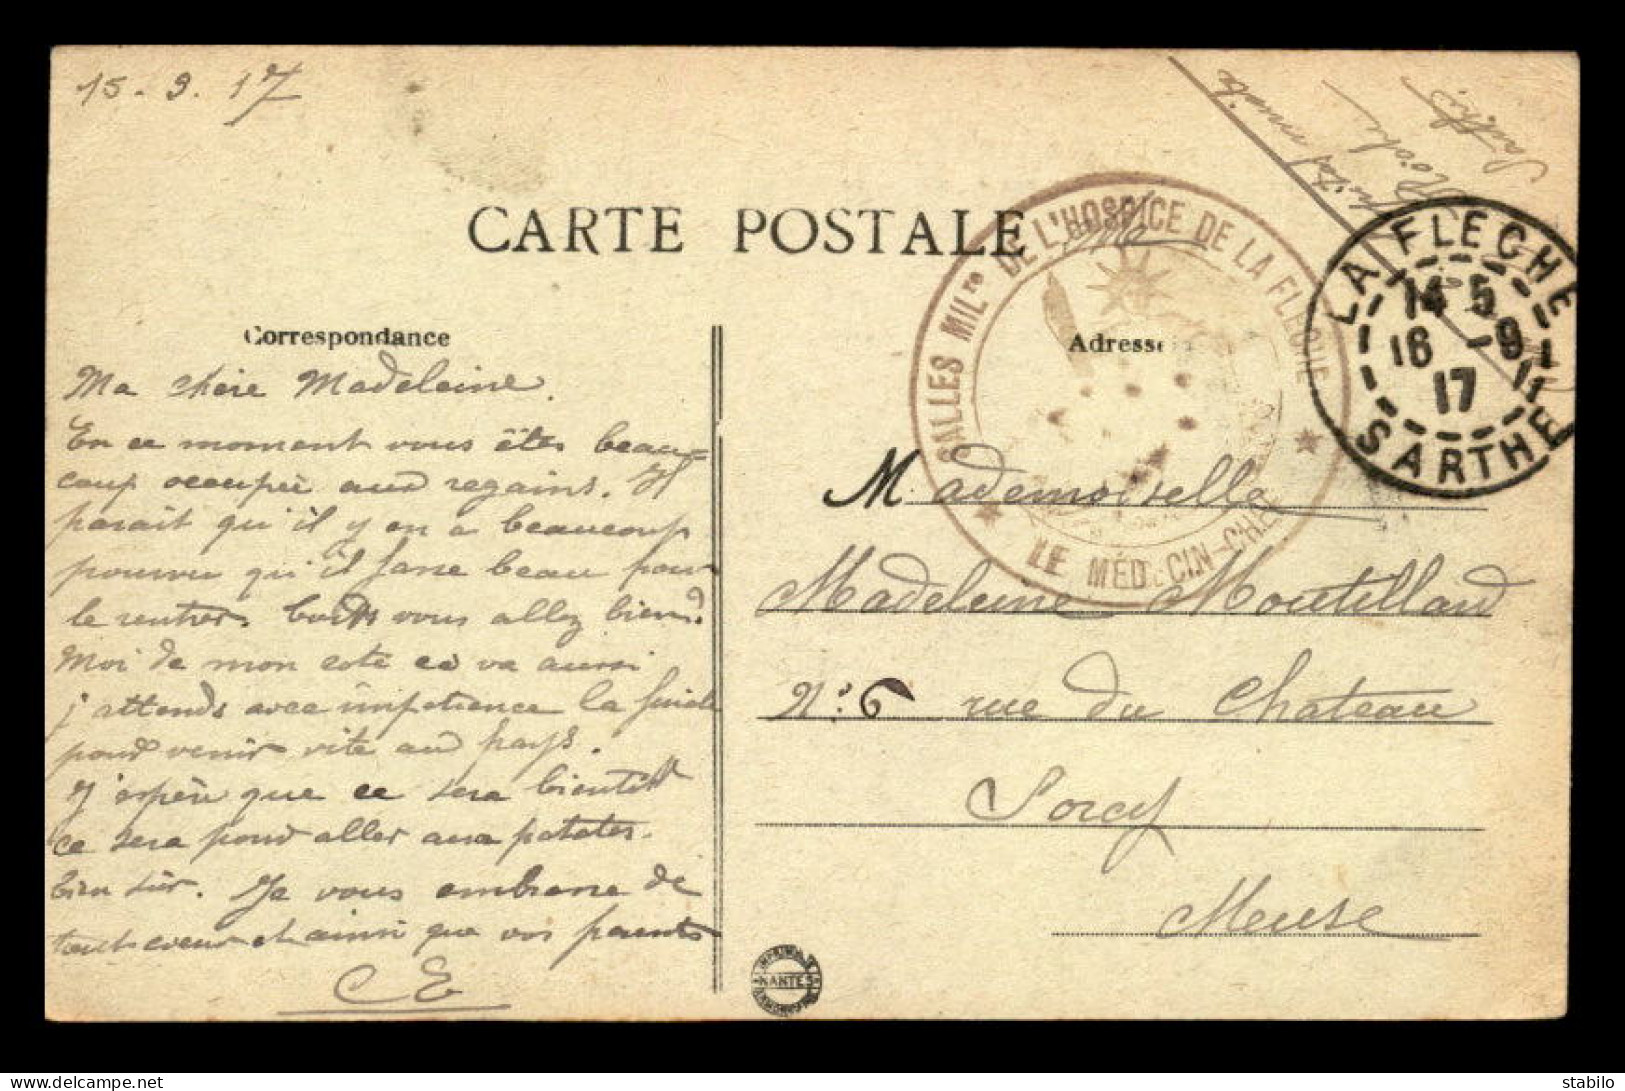 15. 9. 17
CARTE POSTALE
Correspondance
Ma chère Madeleine.
En ce moment vous êtes beau=
coup occupée aux regains. Il
parait qu'il y en a beaucoup
pourvu qu'il fasse beau pour
le rentrer. vous allez bien.
Moi de mon coté ce va aussi
j'attends avec impatience la
pour venir vite au pays.
J'espère que ce sera bientôt
ce sera pour aller aux patates
bien sûr. Je vous embrasse de
tout coeur et ainsi que vos parents
CE
SALLES MILres DE L'HOSPICE DE LA FLECHE
LE MÉDECIN-CHEF
LA FLECHE
14 5
16 -9
17
SARTHE
Adresse
Mademoiselle
Madeleine Moutillard
No 6 rue du Chateau
Sorcy
Meuse
NANTES
delcampe.net
stabilo